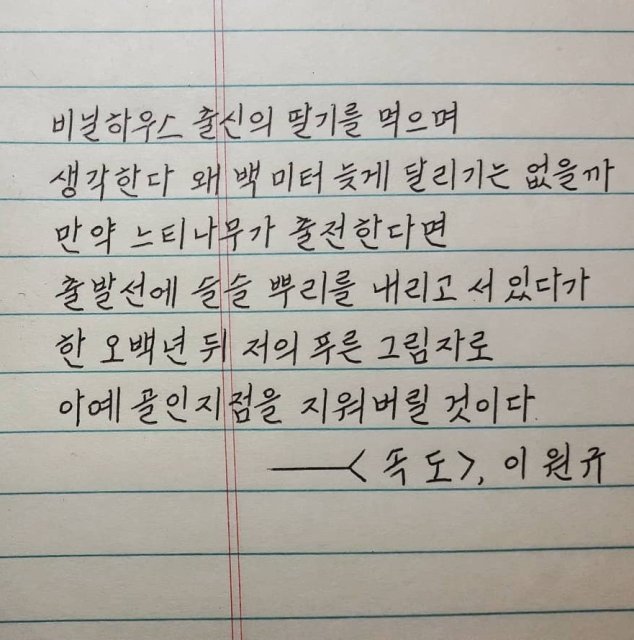 비닐하우스 출신의 딸기를 먹으며
생각한다 왜 백 미터 늦게 달리기는 없을까
만약 느티나무가 출전한다면
출발선에 슬슬 뿌리를 내리고 서 있다가
한 오백년 뒤 저의 푸른 그림자로
아예 골인지점을 지워버릴 것이다
——〈속도〉, 이원규